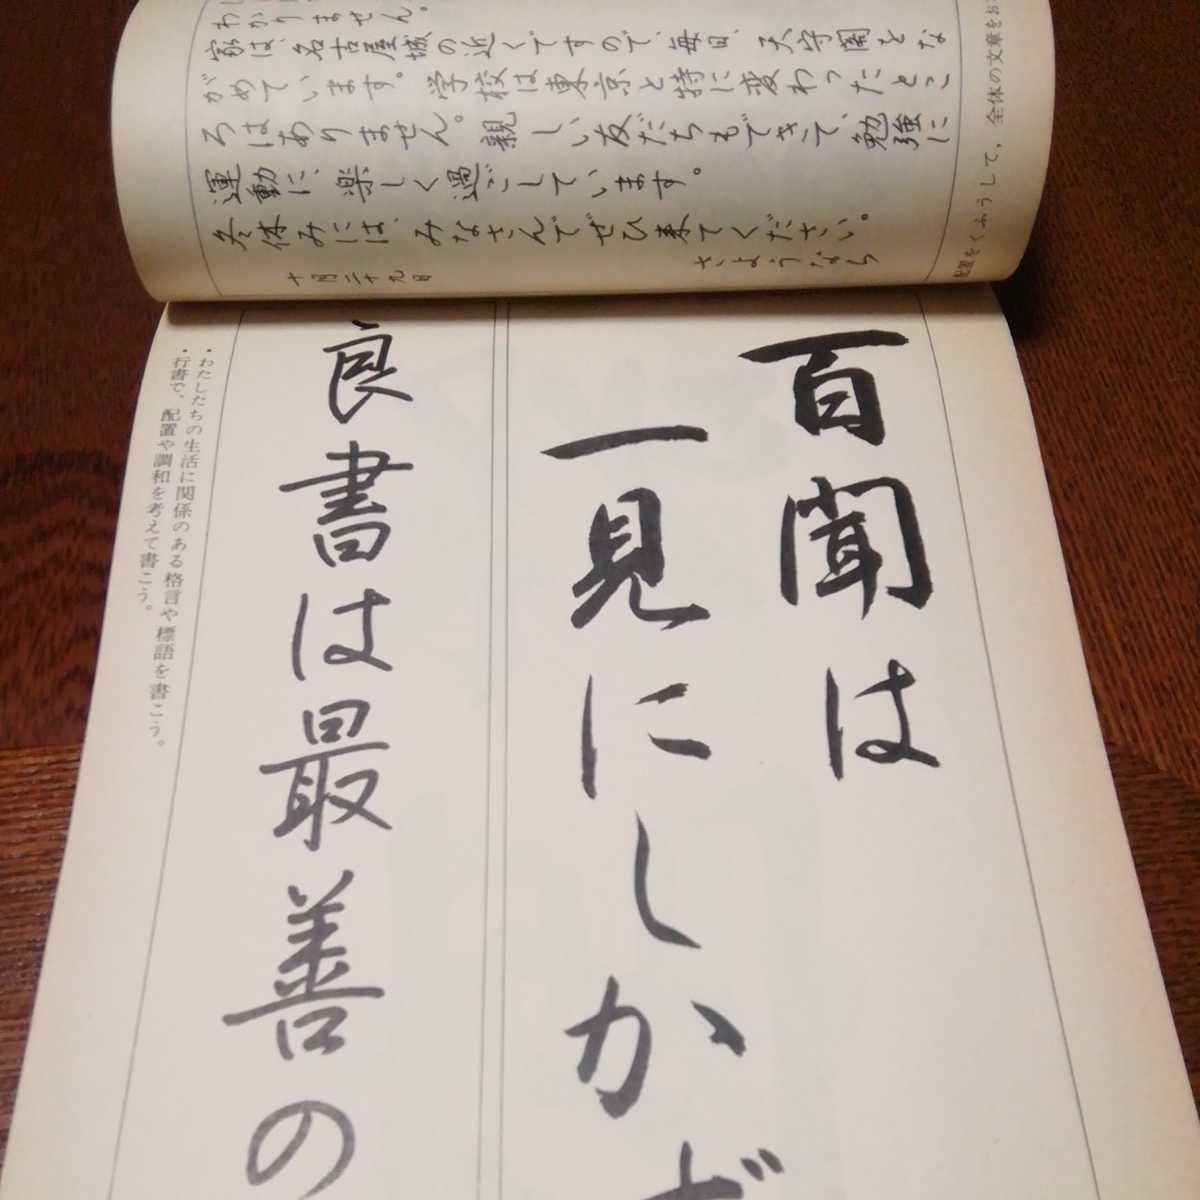 わかりません。
家は、名古屋城の近くですので、毎日、天守閣をな
がめています。学校は東京と特に変わったところ
ろはありません。親しい友だちもできて、勉強に
運動に、楽しく過ごしています。
冬休みには、みなさんでぜひ来てください。
さようなら
十月二十九日
配置をくふうして、全体の文章をお
百聞は
一見にしかず
良書は最善の
・わたしたちの生活に関係のある格言や標語を書こう。
・行書で、配置や調和を考えて書こう。